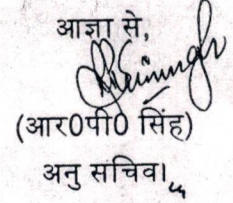 आज्ञा से,
(आर0पी0 सिंह)
अनु सचिव।